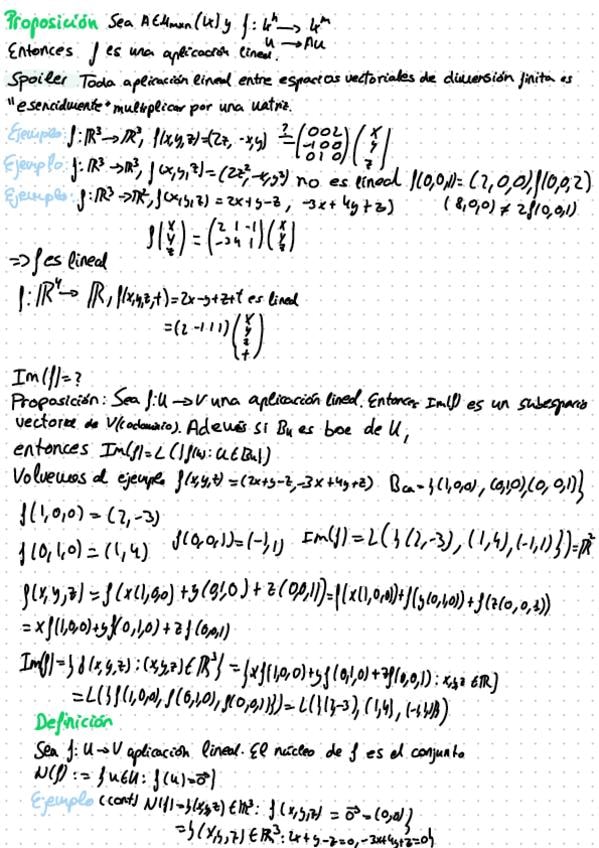 Proposición Sea A∈Mmxn(K) y f: Kⁿ → Kᵐ
u → Au
Entonces f es una aplicación lineal.
Spoiler Toda aplicación lineal entre espacios vectoriales de dimensión finita es
"esencialmente" multiplicar por una matriz.
Ejemplo: f: ℝ³→ℝ³, f(x,y,z)=(2z, -x,y) ?= (0 0 2 / -1 0 0 / 0 1 0) (x / y / z)
Ejemplo: f: ℝ³→ℝ³, f(x,y,z)=(2z², -x,y) no es lineal f(0,0,1)=(2,0,0), f(0,0,2)
(8,0,0) ≠ 2f(0,0,1)
Ejemplo: f: ℝ³→ℝ², f(x,y,z) = 2x+y-z, -3x+4y+z)
f(x / y / z) = (2 1 -1 / -3 4 1) (x / y / z)
=> f es lineal
f: ℝ⁴ → ℝ, f(x,y,z,t)=2x-y+z+t es lineal
=(2 -1 1 1) (x / y / z / t)
Im(f)=?
Proposición: Sea f: U → V una aplicación lineal. Entonces Im(f) es un subespacio
vectorial de V(codominio). Además si Bu es base de U,
entonces Im(f)=L({f(u): u∈Bu})
Volvemos al ejemplo f(x,y,z)=(2x+y-z,-3x+4y+z) Bca={(1,0,0), (0,1,0),(0,0,1)}
f(1,0,0)=(2,-3)
f(0,1,0)=(1,4) f(0,0,1)=(-1,1) Im(f)=L({(2,-3), (1,4), (-1,1)})=ℝ²
f(x,y,z)=f(x(1,0,0)+y(0,1,0)+z(0,0,1))=f(x(1,0,0))+f(y(0,1,0))+f(z(0,0,1))
=xf(1,0,0)+yf(0,1,0)+zf(0,0,1)
Im(f)={f(x,y,z):(x,y,z)∈ℝ³}={xf(1,0,0)+yf(0,1,0)+zf(0,0,1): x,y,z∈ℝ}
=L({f(1,0,0), f(0,1,0), f(0,0,1)})=L({(2,-3), (1,4), (-1,1)})
Definición
Sea f: U→V aplicación lineal. El núcleo de f es el conjunto
N(f) := {u∈U: f(u)=0⃗}
Ejemplo (cont) N(f)={(x,y,z)∈ℝ³: f(x,y,z) = 0⃗=(0,0)}
={(x,y,z)∈ℝ³: 2x+y-z=0, -3x+4y+z=0}